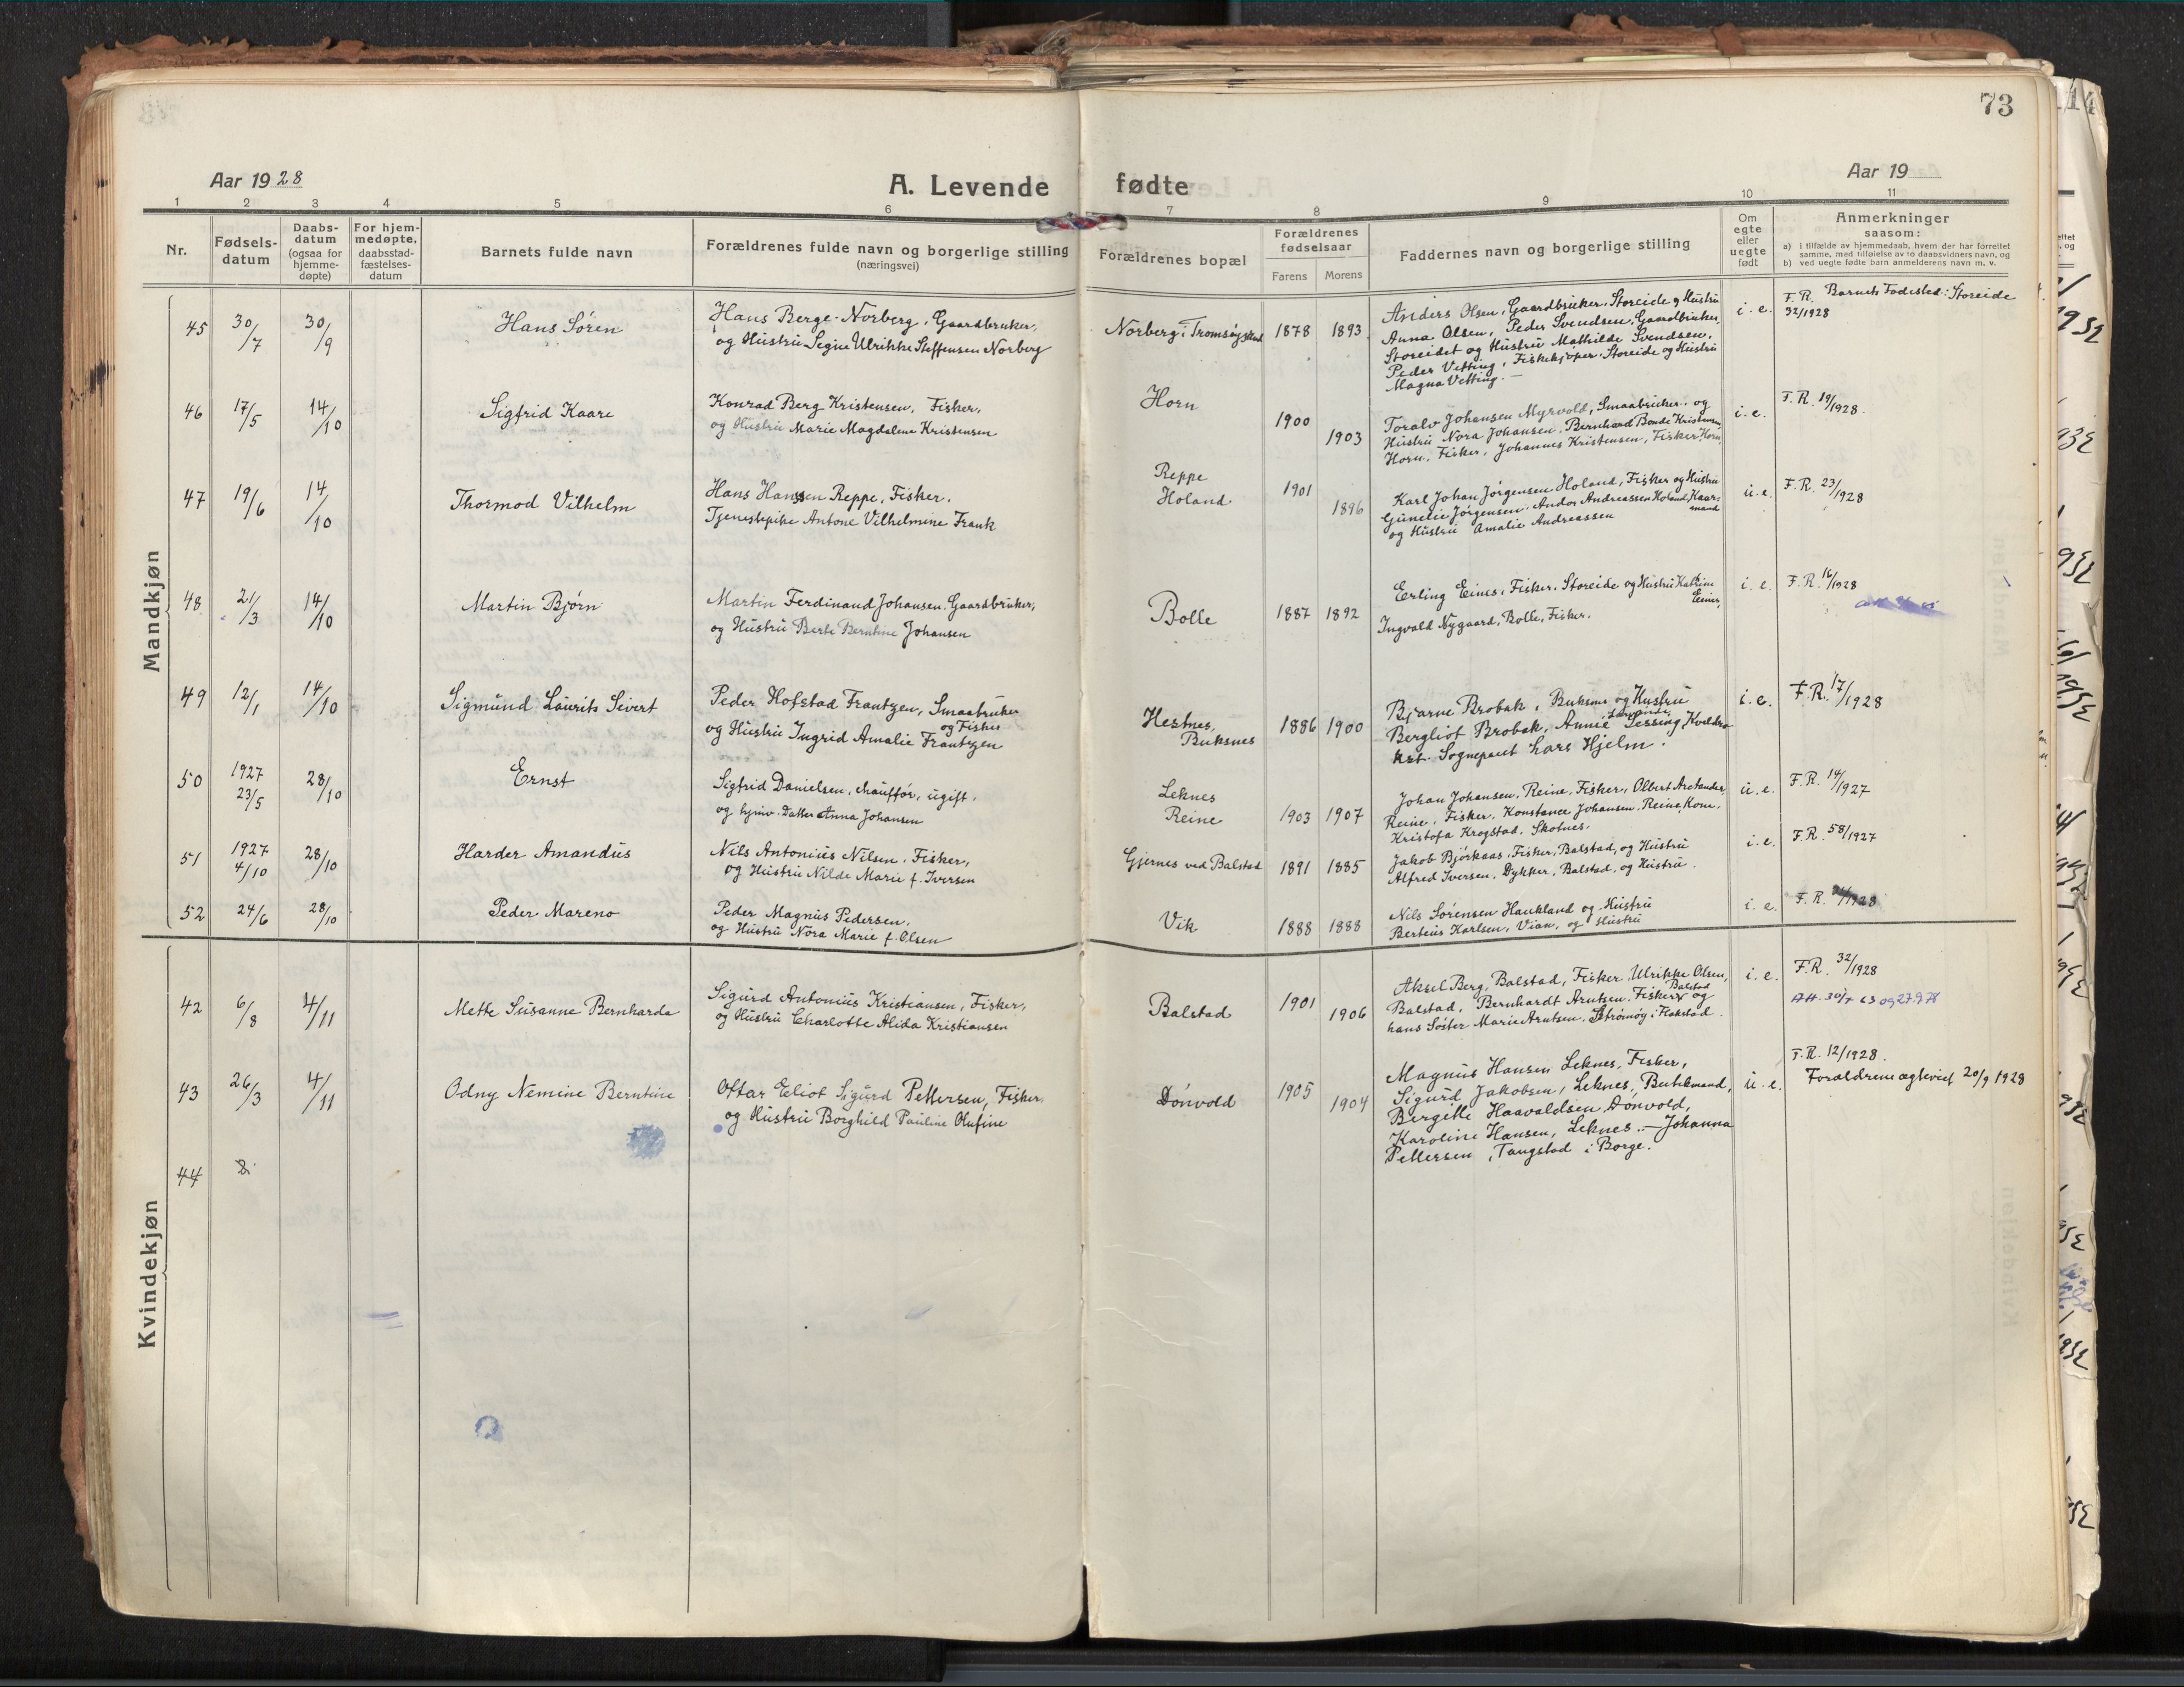 73
Aar 1928
A. Levende fødte
Aar 19
1 2 3 4 5 6 7 8 9 10 11
Nr.
Fødsels-
datum
Daabs-
datum
(ogsaa for
hjemme-
døpte)
For hjem-
medøpte,
daabsstad-
fæstelses-
datum
Barnets fulde navn
Forældrenes fulde navn og borgerlige stilling
(næringsvei)
Forældrenes bopæl
Forældrenes
fødselsaar
Farens Morens
Faddernes navn og borgerlige stilling
Om
egte
eller
uegte
født
Anmerkninger
saasom:
a) i tilfælde av hjemmedaab, hvem der har forrettet
samme, med tilføielse av to daabsvidners navn, og
b) ved uegte fødte barn anmelderens navn m. v.
Mandkjøn
45 30/7 30/9 Hans Sören
Hans Berge-Norberg, Gaardbruker,
og Hustru Segne Ulrikke Steffensen Norberg
Norberg i Tromsøysund 1878 1893
Anders Olsen, Gaardbruker, Storeide og Hustru
Anna Olsen, Peder Svendsen, Gaardbruker,
Storeidet og Hustru Mathilde Svendsen.
Peder Vetting, Fiskekjøper, Storeide og Hustru
Magna Vetting. —
i. e. F. R. 32/1928 Barnets Fødested: Storeide
46 17/5 14/10 Sigfrid Kaare
Konrad Berg Kristensen, Fisker,
og Hustru Marie Magdalene Kristensen
Horn 1900 1903
Toralv Johansen Myrvold, Smaabruker, og
Hustru Nora Johansen, Bernhard Bonde Kristensen
Horn, Fisker, Johannes Kristensen, Fisker, Horn
i. e. F. R. 19/1928.
47 19/6 14/10 Thormod Vilhelm
Hans Hansen Reppe, Fisker.
Tjenestepike Antone Vilhelmine Frank
Reppe
Holand 1901 1896
Karl Johan Jörgensen Holand, Fisker og Hustru
Gunelie Jörgensen, Andor Andreassen Holand, Kaar-
mand
og Hustru Amalie Andreassen
u. e. F. R. 23/1928
48 21/3 14/10 Martin Bjørn
Martin Ferdinand Johansen, Gaardbruker,
og Hustru Berte Berntine Johansen
Bolle 1887 1892
Erling Eines, Fisker, Storeide og Hustru Katrine
Eines,
Ingvald Nygaard, Bolle, Fisker.
i. e. F. R. 16/1928
49 12/1 14/10 Sigmund Laurits Sivert
Peder Hofstad Frantzen, Smaabruker
og Fisker
og Hustru Ingrid Amalie Frantzen
Hestnes,
Buksnes 1886 1900
Bjarne Brobak, Buksnes og Hustru
Bergliot Brobak, Annie Lessing,
Sogneprest Lars Hjelm.
i. e. F. R. 17/1928
50 1927 23/5 28/10 Ernst
Sigfrid Danielsen, chauffør, ugift,
og hjmv. Datter Anna Johansen
Leknes
Reine 1903 1907
Johan Johansen, Reine, Fisker, Olbert Arctander,
Reine, Fisker, Konstance Johansen, Reine, Kone,
Kristofa Krogstad, Skotnes.
u. e. F. R. 14/1927
51 1927 4/10 28/10 Harder Amandus
Nils Antonius Nilsen, Fisker,
og Hustru Nilde Marie f. Iversen
Gjernes ved Balstad 1891 1885
Jakob Bjørkaas, Fisker, Balstad, og Hustru
Alfred Iversen, Dykker, Balstad, og Hustru.
i. e. F. R. 58/1927
52 24/6 28/10 Peder Mareno
Peder Magnus Pedersen,
og Hustru Nora Marie f. Olsen
Vik 1888 1888
Nils Sørensen Haukland og Hustru
Berteus Karlsen, Vian, og Hustru
i. e. F. R. /1928
Kvindekjøn
42 6/8 4/11 Mette Susanne Bernharda
Sigurd Antonius Kristiansen, Fisker,
og Hustru Charlotte Alida Kristiansen
Balstad 1901 1906
Aksel Berg, Balstad, Fisker, Ulrikke Olsen,
Balstad
Balstad, Bernhardt Arntsen, Fisker, og
hans Søster Marie Arntsen, Strømøy i Flakstad.
i. e. F. R. 32/1928
43 26/3 4/11 Odny Nemine Berntine
Ottar Eliot Sigurd Pettersen, Fisker
og Hustru Borghild Pauline Olufine
Dónvold 1905 1904
Magnus Hansen Leknes, Fisker,
Sigurd Jakobsen, Leknes, Butikmand,
Bergitte Haavaldsen Dónvold,
Karoline Hansen, Leknes. — Johanna
Pettersen, Tangstad i Borge.
u. e. F. R. 12/1928.
Foræld­rene egteviet 20/9 1928
44 8